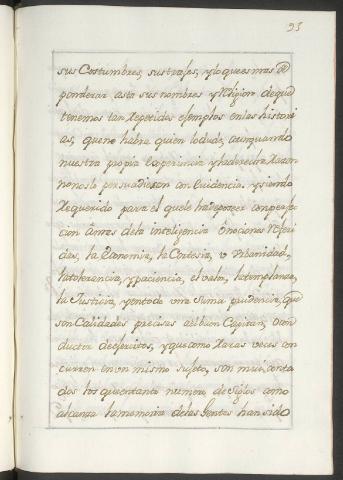 93
sus Costumbres, sus trajes, y lo que es mas de
ponderar asta sus nombres y Religion de que
tenemos tan Repetidos exemplos en las histori
as, que no habra quien lo dude, aunquando
nuestra propia Experiencia y la derecha Razon
no nos lo persuadiesen con Evidencia, y siendo
Requerido para el que le ha de poseer con perfec
cion âmas de la inteligencia ô nociones referi
das, la Economia, la Cortesia, v Vrbanidad,
la tolerancia, y paciencia, el valor, la templanza,
la Justicia, y en todo vna Suma prudencia, que
son Calidades precisas al buen Capitan, o con
ductor de exercitos, y que como Raras veces con
curren en vn mismo sujeto, son mui conta
dos los que en tanto numero de Siglos como
alcanza la memoria de las Gentes han sido